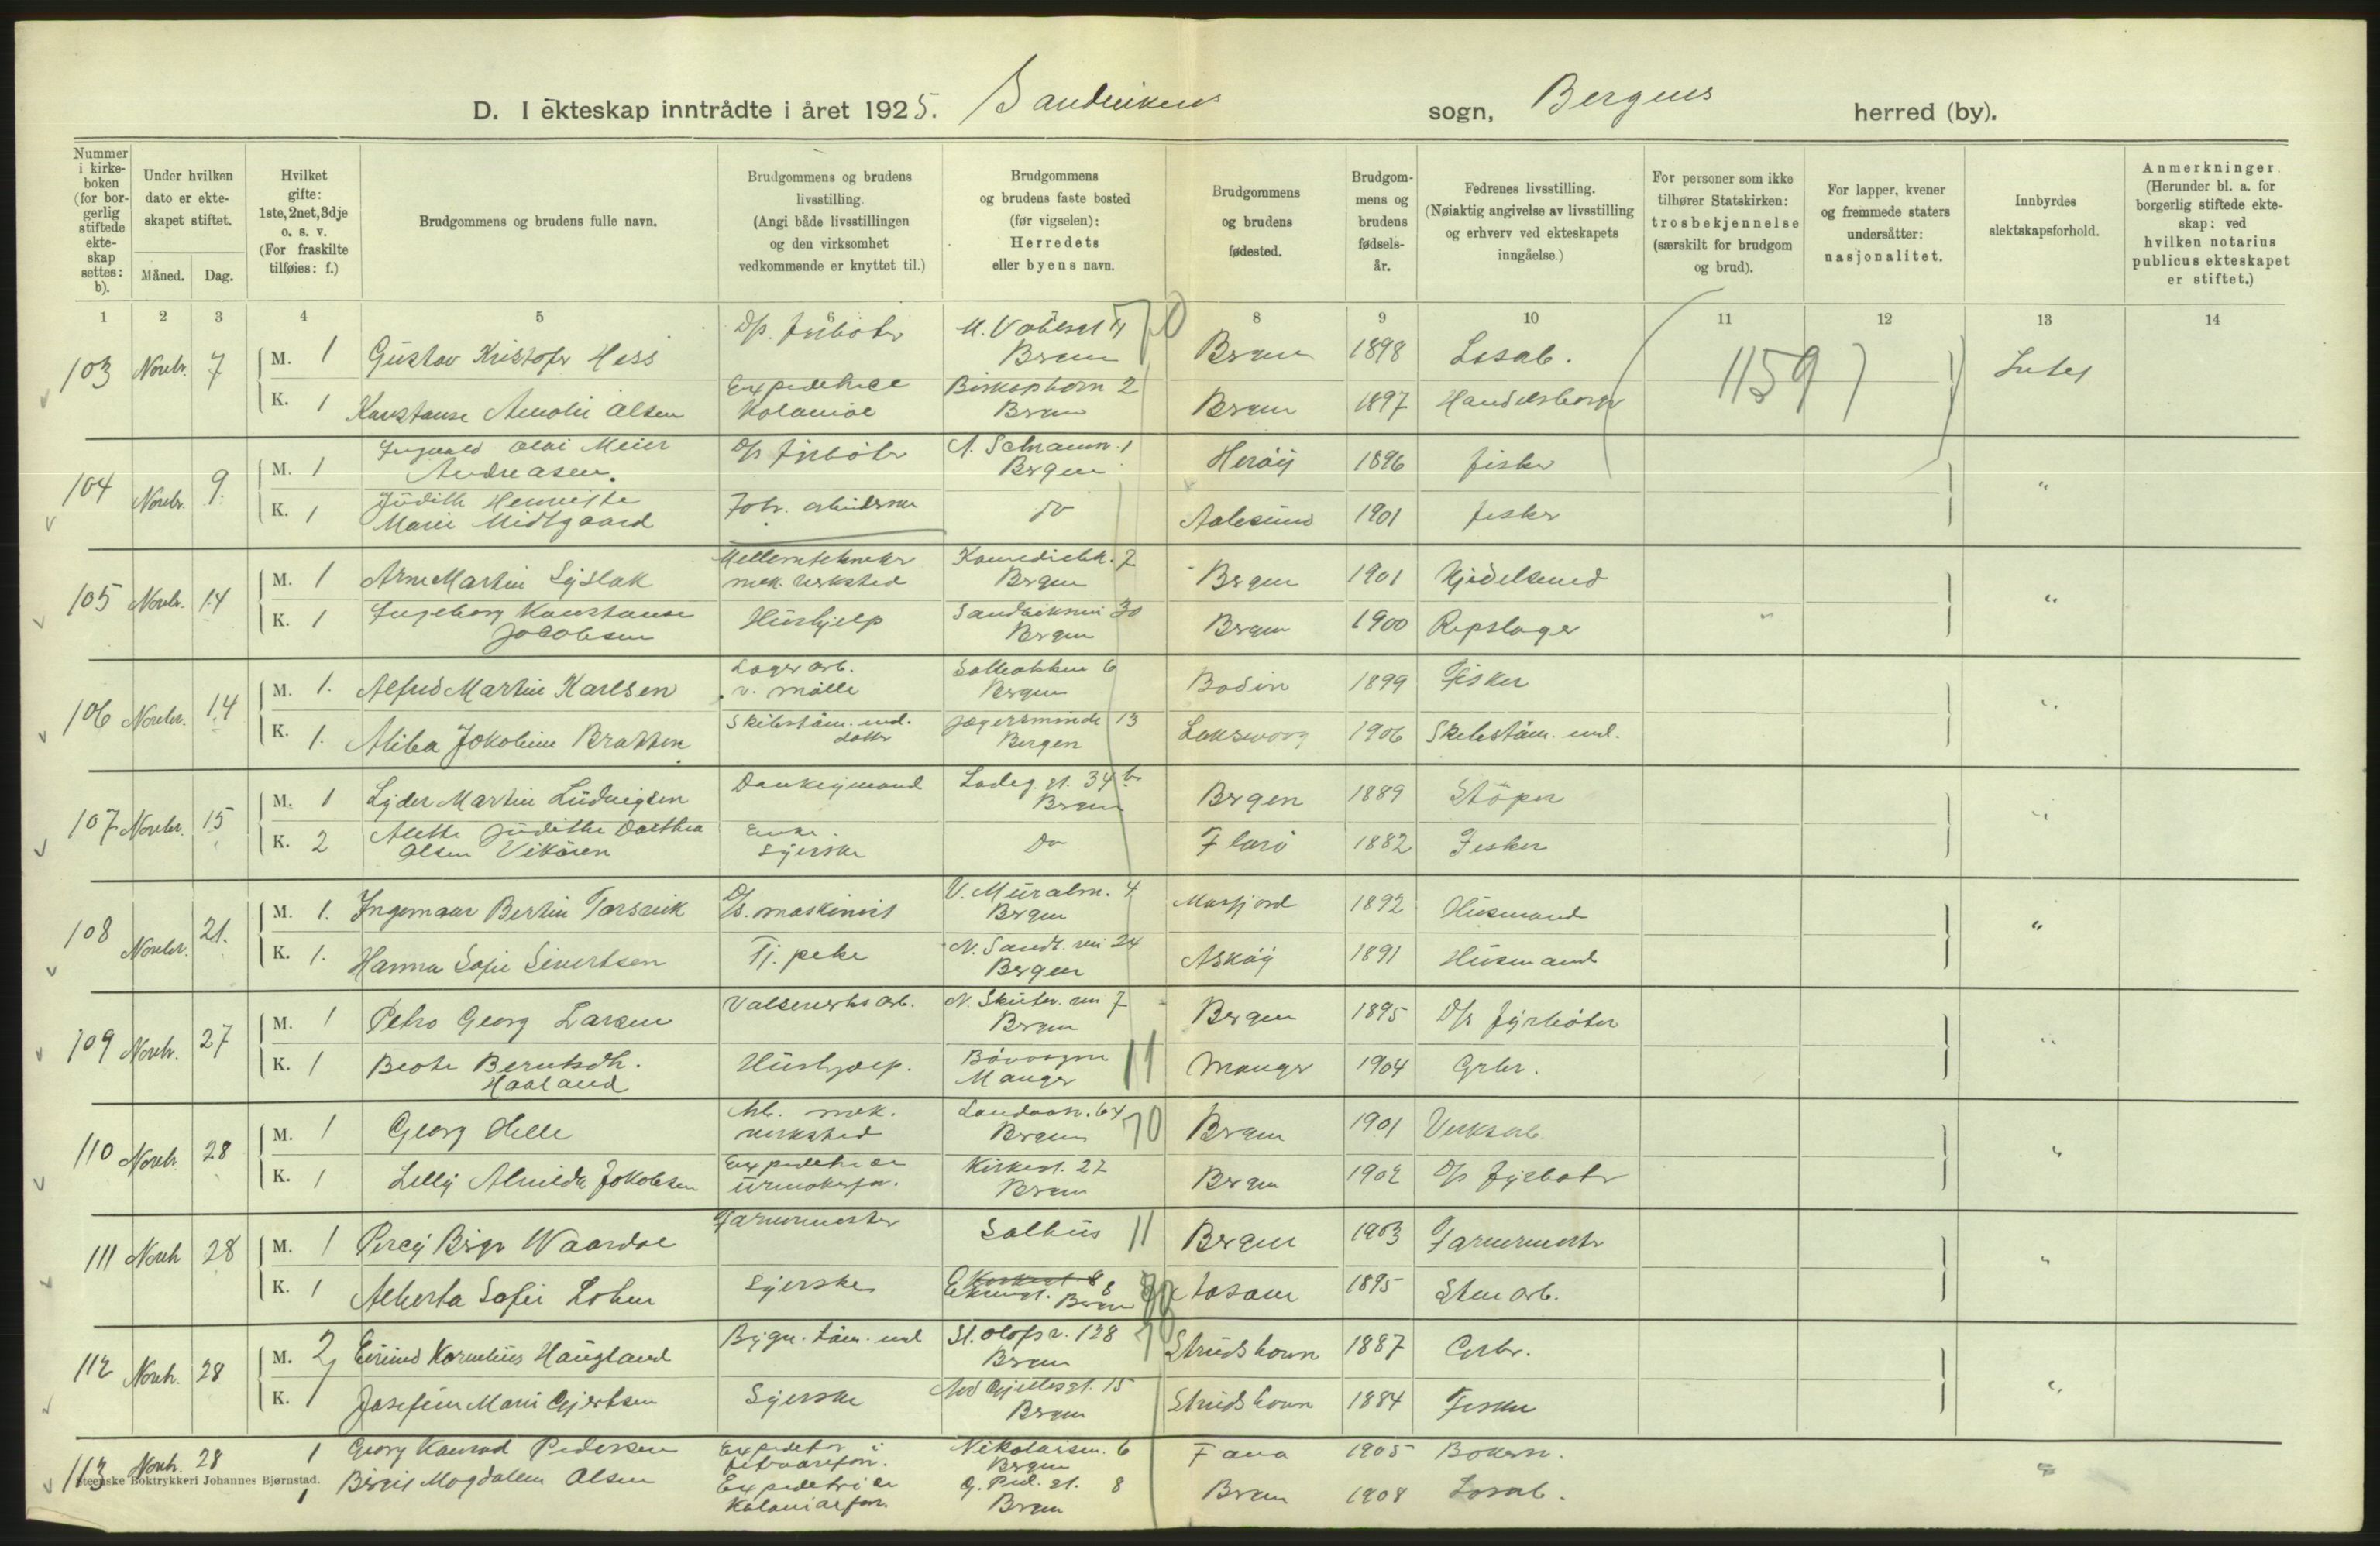 D. I ekteskap inntrådte i året 1925. Sandvikens sogn, Bergens herred (by).
Nummer i kirkeboken (for borgerlig stiftede ekteskap settes: b).
Under hvilken dato er ekteskapet stiftet.
Måned. Dag.
Hvilket gifte: 1ste, 2net, 3dje o. s. v. (For fraskilte tilføies: f.)
Brudgommens og brudens fulle navn.
Brudgommens og brudens livsstilling. (Angi både livsstillingen og den virksomhet vedkommende er knyttet til.)
Brudgommens og brudens faste bosted (før vigselen): Herredets eller byens navn.
Brudgommens og brudens fødested.
Brudgommens og brudens fødselsår.
Fedrenes livsstilling. (Nøiaktig angivelse av livsstilling og erhverv ved ekteskapets inngåelse.)
For personer som ikke tilhører Statskirken: trosbekjennelse (særskilt for brudgom og brud).
For lapper, kvener og fremmede staters undersåtter: nasjonalitet.
Innbyrdes slektskapsforhold.
Anmerkninger. (Herunder bl. a. for borgerlig stiftede ekteskap: ved hvilken notarius publicus ekteskapet er stiftet.)
1 2 3 4 5 6 8 9 10 11 12 13 14
103 Novbr. 7 M. 1 Gustav Kristofer Hess D/s. fyrbøter Bergen 70 Bergen 1898 Losarb. 1159 Intet
K. 1 Konstanse Amalie Olsen Expeditrice Kolonial Biskopshavn 2 Bergen Bergen 1897 Handelsborger
104 Novbr. 9. M. 1 Ingvald Olai Meier Andreasen. D/s fyrbøter Bergen Herøy 1896 fisker "
K. 1 Judith Henriette Marie Midtgaard Fabr. arbeiderske do Aalesund 1901 fisker
105 Novbr. 14 M. 1 Arne Martin Lyslak mek. verksted Bergen Bergen 1901 "
K. 1 Ingeborg Konstanse Jacobsen Hushjelp Sandviksvei 30 Bergen Bergen 1900 Repslager
106 Novbr. 14 M. 1. Alfred Martin Karlsen Lager arb. v. mølle 6 Bergen Bodin 1899 Fisker "
K. 1. Jokobine Bratten Skibstøm. datter Jægersminde 13 Bergen Laksevaag 1906 Skibstøm.
107 Novbr. 15 M. 1 Lyder Martin Ludvigsen Donkeymand Ladeg. gt. 34 b. Bergen Bergen 1889 Støper "
K. 2 Judithe Dorthea Olsen Vikøren Enke. Syerske Do Florø 1882 Fisker
108 Novbr. 21. M. 1. Ingemaar Bertin Torsvik D/s. maskinist V. Muralm. 4 Bergen Masfjord 1892 Husmand "
K. 1. Hanna Sofie Sivertsen Tj. pike N. Sandv. vei 24 Bergen Askøy 1891 Husmand
109 Novbr. 27 M. 1 Petro Georg Larsen Valseverks arb. N. Skutev. vei 7 Bergen Bergen 1895 D/s fyrbøter "
K. 1 Beate Berntsdtr. Haaland Hushjælp. Bøvaagen Manger 11 Manger 1904 Grbr.
110 Novbr. 28 M. 1 Georg Helle Arb. mek. verksted Landaasv. 64 Bergen 70 Bergen 1901 Verksarb. "
K. 1 Lilly Almilda Jokobsen Expeditrice urmakerfor. Kirkegt. 22 Bergen Bergen 1902 D/s fyrbøter
111 Novbr. 28 M. 1 Percy Birger Waardal Farvermester Salhus 11 Bergen 1903 Farvermester "
K. 1 Alberta Sofie Lohne Syerske 8 Bergen 1895 Stenarb.
112 Novbr. 28 M. 2 Eivind Kornelius Haugland Bygn. tøm. St. Olafsv. 128 Bergen 70 Strudshavn 1887 Grbr. "
K. 1 Josefine Marie Gjertsen Syerske 15 Bergen Strudshavn 1884 Fisker
113 Novbr. 28 1 Georg Konrad Pedersen Expeditør i Nikolaism. 6 Bergen Fana 1905 Bokm. "
1 Birgit Magdalene Olsen Expeditrice Kolonialfor. 8 Bergen Bergen 1908 Losarb.
Steenske Boktrykkeri Johannes Bjørnstad.